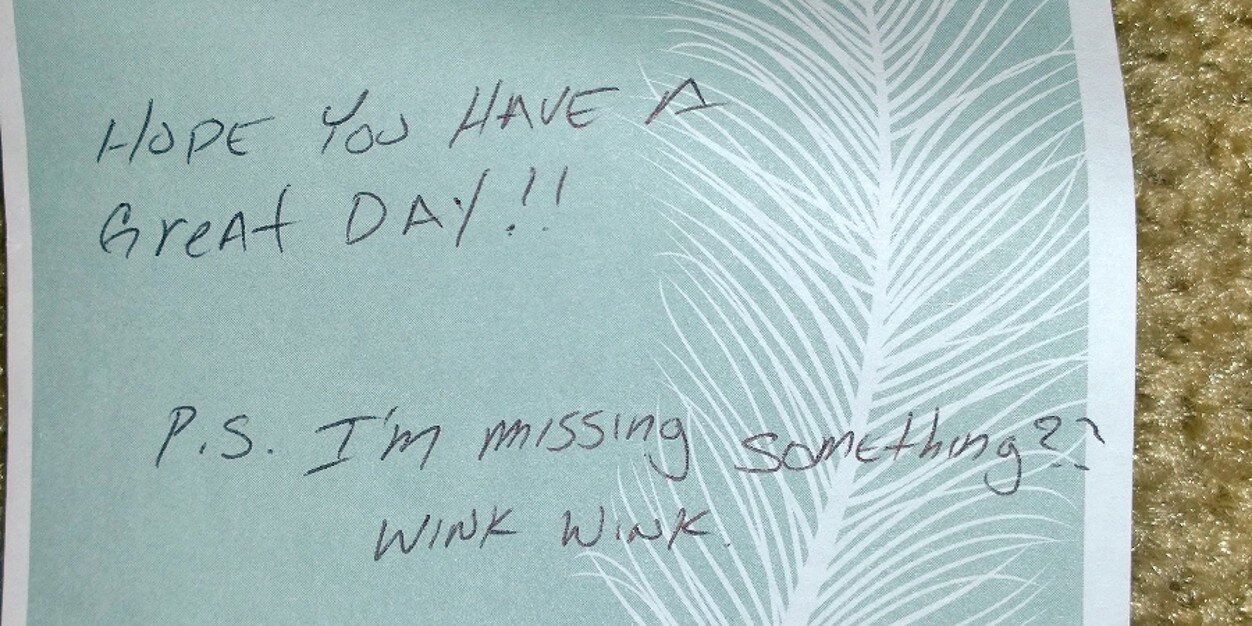 HOPE YOU HAVE A
GreAt DAY!!
P.S. I'm missing something??
WINK WINK.